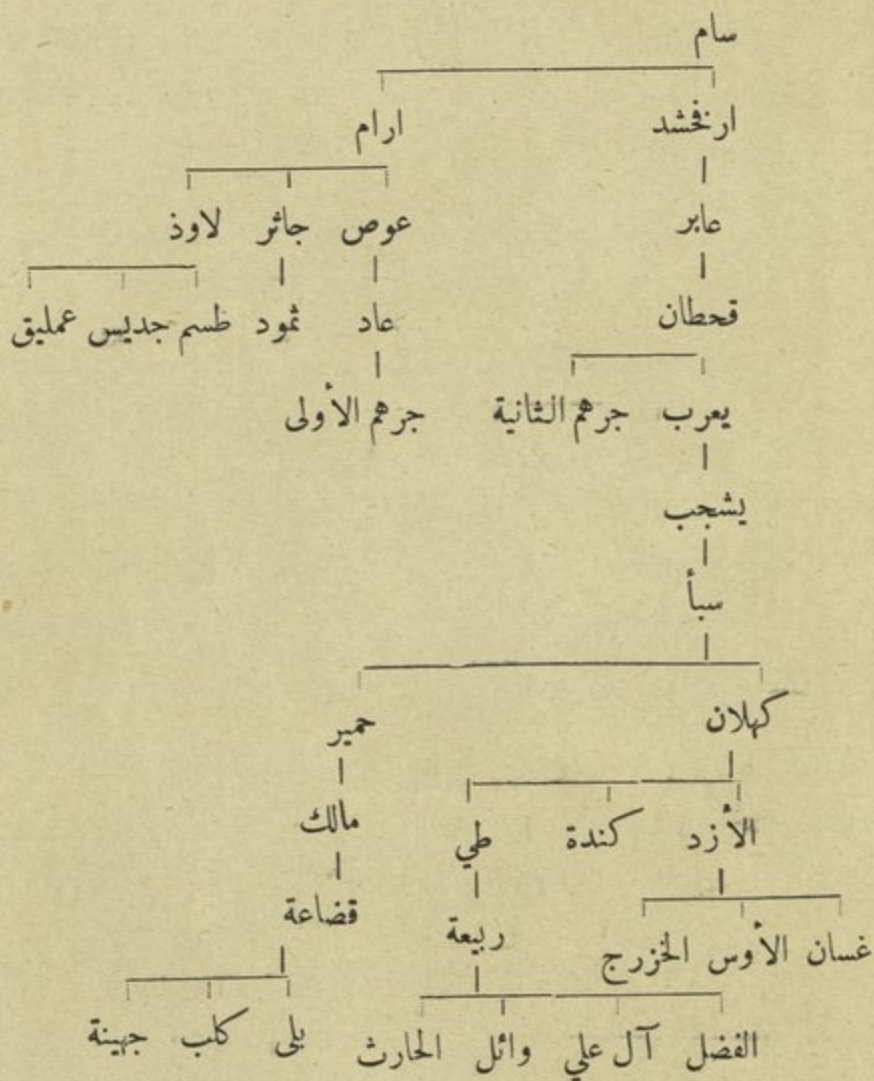 سام
ارفخشد ارام
عابر عوص جاثر لاوذ
قحطان عاد ثمود طسم جديس عمليق
يعرب جرهم الثانية جرهم الأولى
يشجب
سبأ
كهلان حمير
الأزد كندة طي مالك
ربيعة قضاعة
غسان الأوس الخزرج
الفضل آل علي وائل الحارث بلى كلب جهينة